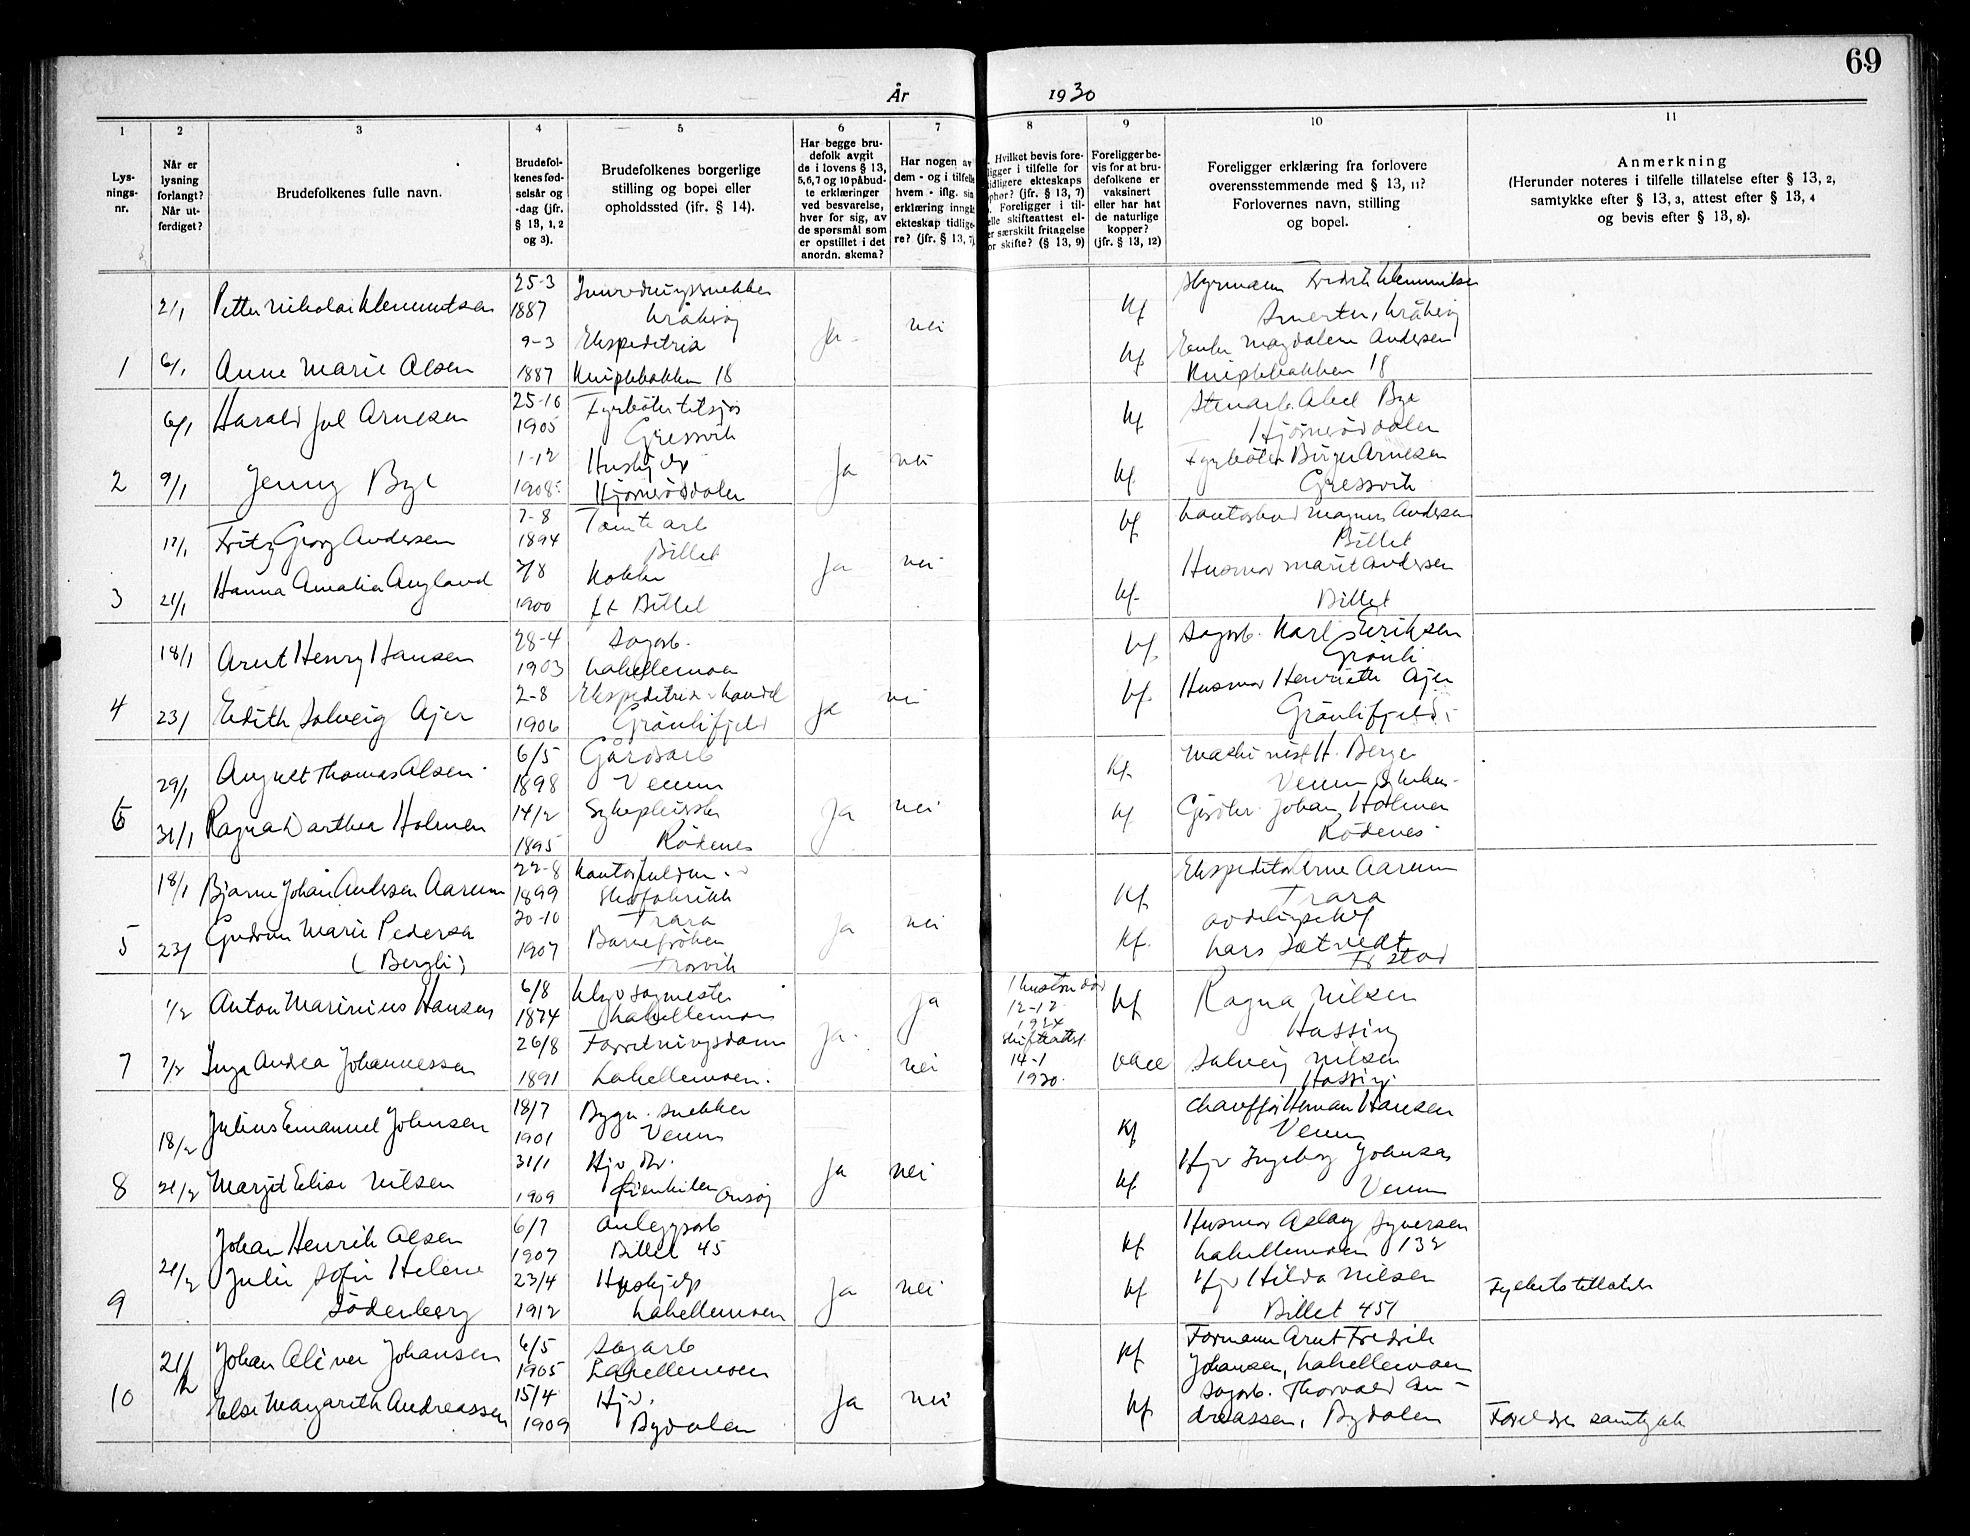 69
År 1930
1 2 3 4 5 6 7 8 9 10 11
Lys-
nings-
nr.
Når er
lysning
forlangt?
Når ut-
ferdiget?
Brudefolkenes fulle navn.
Brudefol-
kenes fød-
selsår og
-dag (jfr.
§ 13, 1, 2
og 3).
Brudefolkenes borgerlige
stilling og bopel eller
opholdssted (ifr. § 14).
Har begge bru-
defolk avgit
de i lovens § 13,
5, 6, 7 og 10 påbud-
te erklæringer
ved besvarelse,
hver for sig, av
de spørsmål som
er opstillet i det
anordn. skema?
Har nogen av
dem - og i tilfelle
hvem - iflg. sin
erklæring inngåt
ekteskap tidlige-
re? (jfr. § 13, 7)
Hvilket bevis fore-
ligger i tilfelle for
tidligere ekteskaps
ophør? (jfr. § 13, 7)
Foreligger i til-
felle skifteattest el-
er særskilt fritagelse
or skifte? (§ 13, 9)
Foreligger be-
vis for at bru-
defolkene er
vaksinert
eller har hat
de naturlige
kopper?
(jfr. § 13, 12)
Foreligger erklæring fra forlovere
overensstemmende med § 13, 11?
Forlovernes navn, stilling
og bopel.
Anmerkning
(Herunder noteres i tilfelle tillatelse efter § 13, 2,
samtykke efter § 13, 3, attest efter § 13, 4
og bevis efter § 13, 8).
1
2/1
6/1
Petter Nikolai Klemmetsen
Anne Marie Olsen
25-3
1887
9-3
1887
Innredningssnekker
Kråkerøy
Ekspeditrise
Kniplebakken 18
Ja
nei
kf
kf
Styrmann Fredrik Klemmetsen
Smerten, Kråkerøy
Magdalene Andersen
Kniplebakken 18
2
6/1
9/1
Harald Jul Arnesen
Jenny Bye
25-10
1905
1-12
1908
Fyrbøter tilsjøs
Gressvik
Hushjelp
Hjørnerøddalen
Ja
nei
kf
kf
Stenarb. Abel Bye
Hjørnerøddalen
Fyrbøter Birger Arnesen
Gressvik
3
17/1
21/1
Fritz Georg Andersen
Hanna Amalia Angland
7-8
1894
7/8
1900
Tomtearb
Billet
Kokke
fx Billet
Ja
nei
kf
kf
Kontorbud Magnus Andersen
Billet
Husmor Marie Andersen
Billet
4
18/1
23/1
Arnt Henry Hansen
Edith Solveig Ajer
28-4
1903
2-8
1906
Sagarb.
Lahellemoen
Ekspeditrise handel
Grønlifjeld
Ja
nei
kf
kf
Sagarb. Karl Eriksen
Grønli
Husmor Henriette Ajer
Grønlifjeld
6
29/1
31/1
August Thomas Olsen
Ragna Dorthea Holmen
6/5
1898
14/2
1895
Gårdsarb
Veum
Sykepleierske
Rødenes
Ja
nei
kf
kf
Maskinist H. Berge
Veum
Gårdbr. Johan Holmen
Rødenes
5
18/1
23/1
Bjarne Johan Andersen Aarum
Gudrun Marie Pedersen
(Bergli)
22-8
1899
20-10
1907
Kontorfuldm.
Skofabrikk
Trara
Barnefrøken
Trosvik
Ja
nei
kf
kf
Ekspeditør Arne Aarum
Trara
Avdelingschef
Lars Sætvedt
Fr.stad
7
1/2
7/2
Anton Marinius Hansen
Inga Andrea Johannessen
6/8
1874
26/8
1891
Høvlmester
Lahellemoen
Forretningsdame
Lahellemoen
Ja
ja
nei
Hustru død
12-12
1924
Skifteattest
14-1
1930
kf
vacc
Ragna Nilsen
Hassing
Solveig Nilsen
Hassing
8
18/2
21/2
Julius Emanuel Johnsen
Margit Elise Nilsen
18/7
1901
31/1
1909
Bygn. snekker
Veum
Hjv. dtr.
Kjenkilen Onsøy
Ja
nei
kf
kf
Chauffør Herman Hansen
Veum
Hjv Ingeborg Johnsen
Veum
9
21/2
Johan Henrik Olsen
Julie Sofie Helene
Söderberg
6/7
1907
23/4
1912
Anleggsarb
Billet 45
Hushjelp
Lahellemoen
Ja
nei
kf
kf
Husmor Aslaug Syversen
Lahellemoen 132
Hjv Hilda Nilsen
Billet 451
Fylkets tillatelse
10
21/2
Johan Oliver Johansen
Else Margarith Andreassen
6/5
1905
15/4
1909
Sagarb
Lahellemoen
Hjv.
Bydalen
Ja
nei
kf
kf
Formann Arnt Fredrik
Johansen, Lahellemoen
Sagarb. Thorvald An-
dreassen, Bydalen
Foreldres samtykke